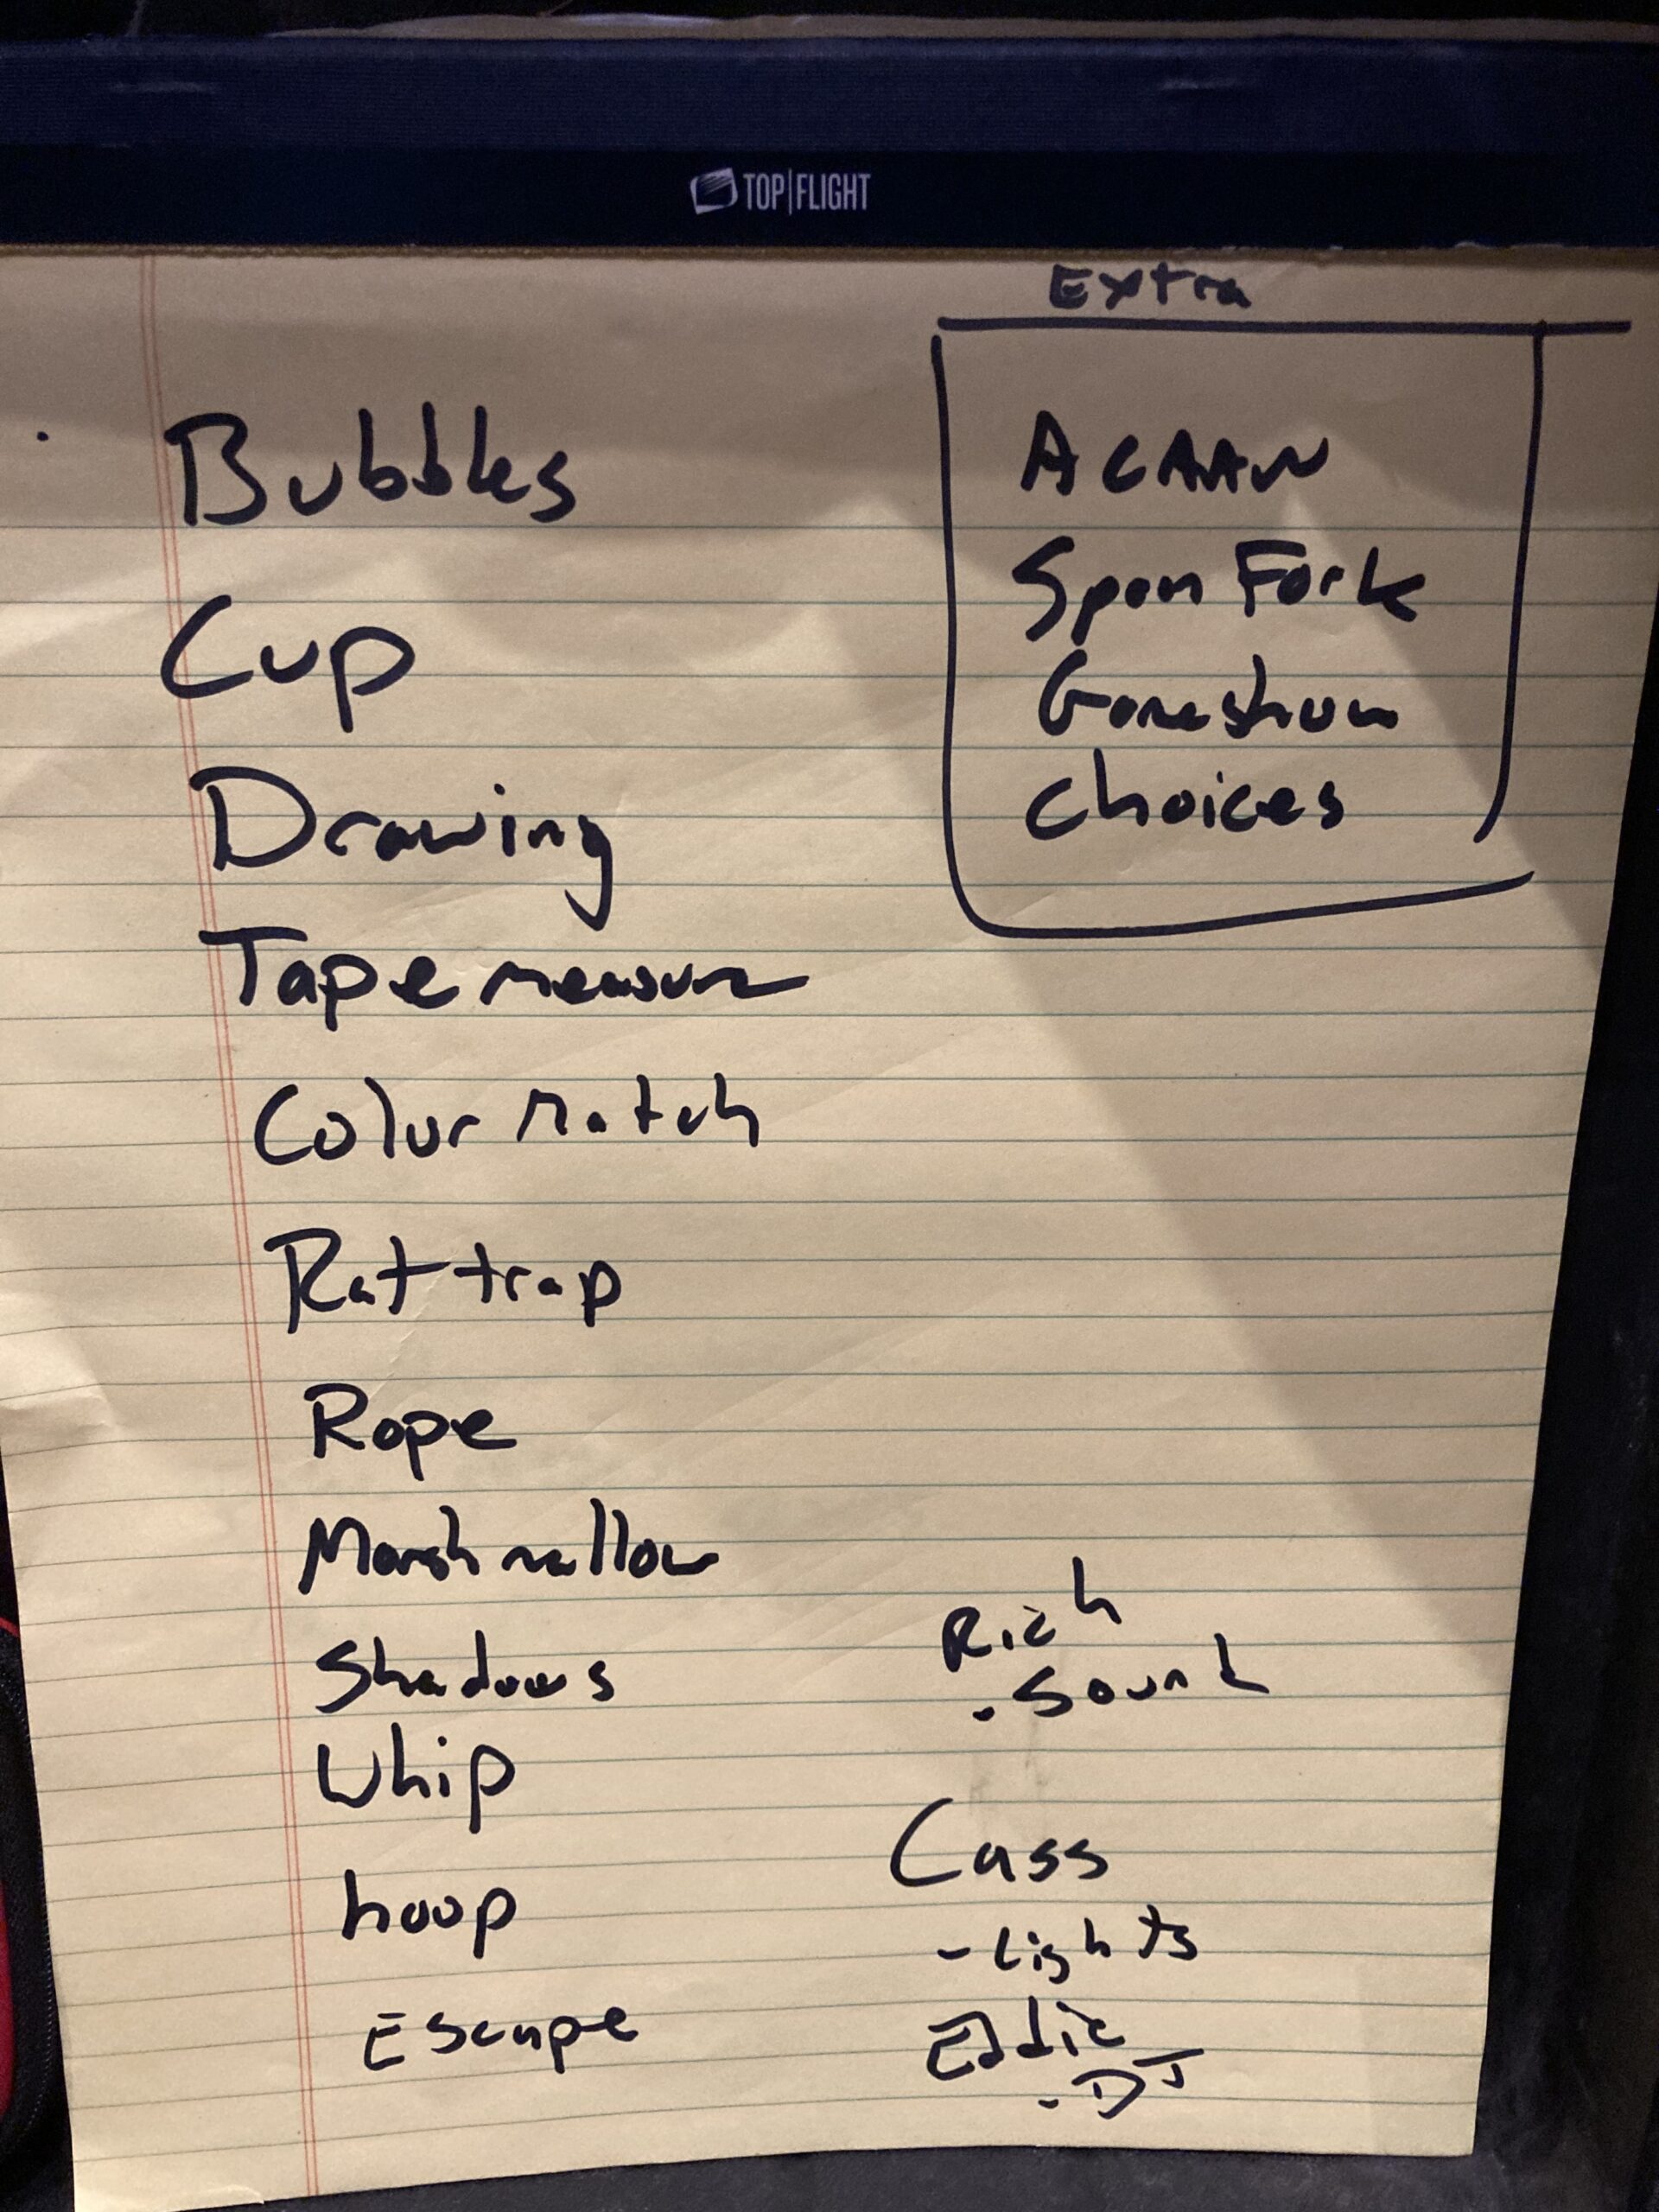 TOP|FLIGHT
Extra
Bubbles
Cup
Drawing
Tape measure
Color Match
Rat trap
Rope
Marshmallow
Shadows
Whip
hoop
Escape
ACAAN
Spoon Fork
Choices
Rich
- Sound
Cass
- Lights
Eddie
- DJ